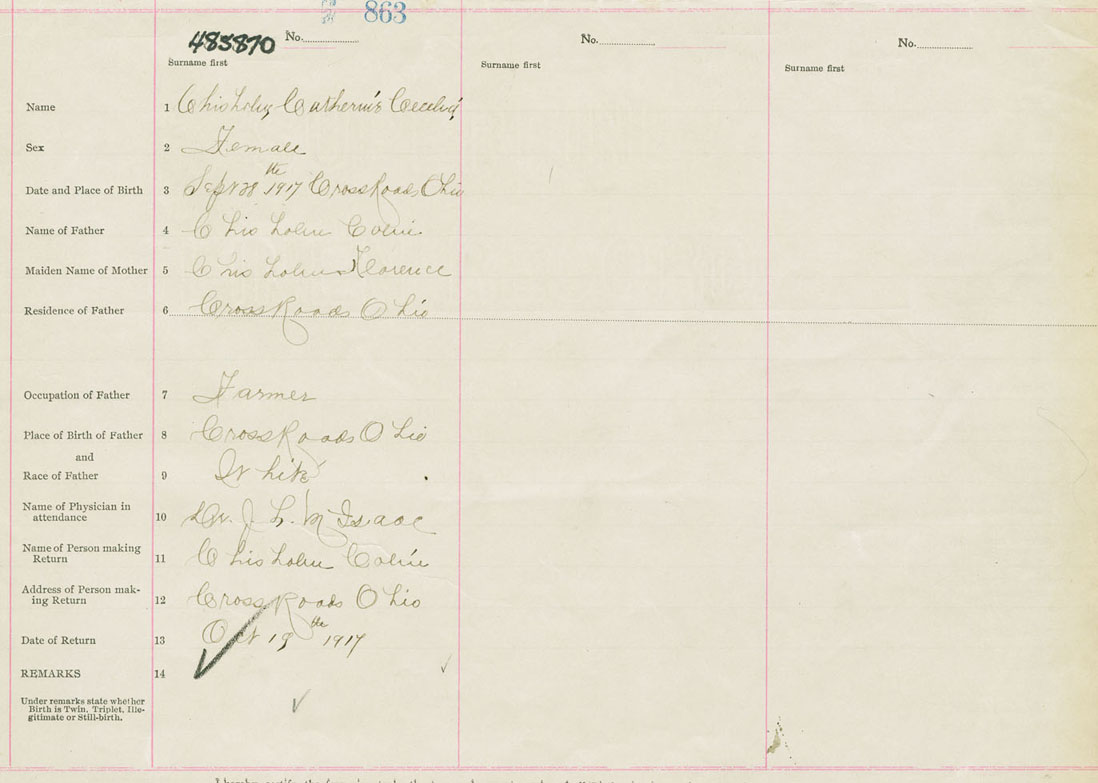 863
483870 No. No. No.
Surname first Surname first Surname first
Name 1 Chisholm, Catherine Cecelia
Sex 2 Female
Date and Place of Birth 3 Sept 28th 1917 Cross Roads Ohio
Name of Father 4 Chisholm Colin
Maiden Name of Mother 5 Chisholm Florence
Residence of Father 6 Cross Roads Ohio
Occupation of Father 7 Farmer
Place of Birth of Father 8 Cross Roads Ohio
and
Race of Father 9 White
Name of Physician in
attendance 10 Dr. J. L. McIsaac
Name of Person making
Return 11 Chisholm Colin
Address of Person mak-
ing Return 12 Cross Roads Ohio
Date of Return 13 Oct 19th 1917
REMARKS 14
Under remarks state whether
Birth is Twin, Triplet, Ille-
gitimate or Still-birth.